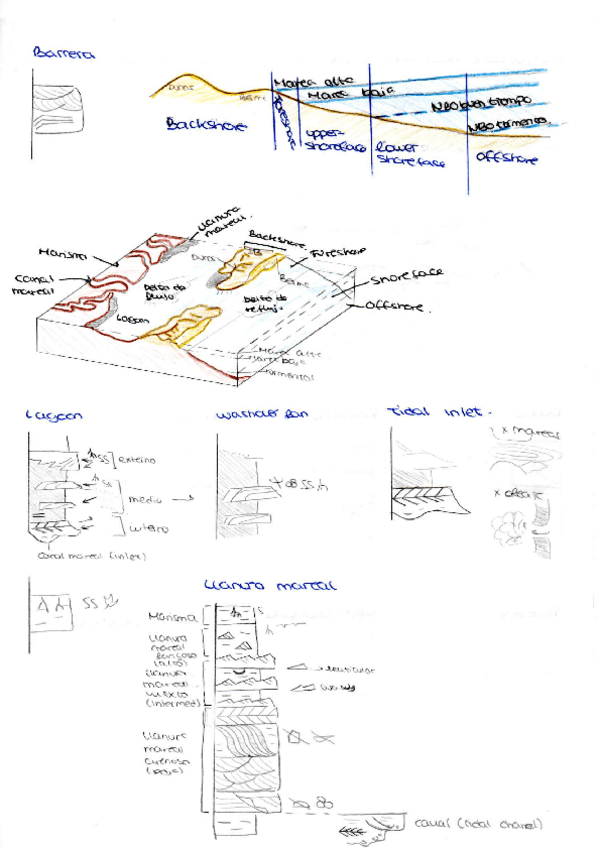 Barrera
Marea alta
Marea baja
NBO buen tiempo
NBO tormenta
Dunas
Berma
Backshore
Foreshore
upper-
shoreface
lower
shoreface
offshore
Llanura
mareal.
Backshore
Foreshore
Marisma
Canal
mareal
Dunas
Berma
Delta de
flujo
Delta de
reflujo
Lagoon
shoreface
Offshore.
Marea alta
Marea baja
Tormenta
Lagoon
Washover fan
Tidal inlet.
x mareas
SS
externo
SS
medio
interno
canal mareal (inlet)
x oleaje
SS
Llanura mareal
Marisma
S
Llanura
mareal
fangosa
(alta)
Llanura
mareal
mixta
(intermed)
lenticular
wavy
Llanura
mareal
arenosa
(baja)
canal (tidal channel)